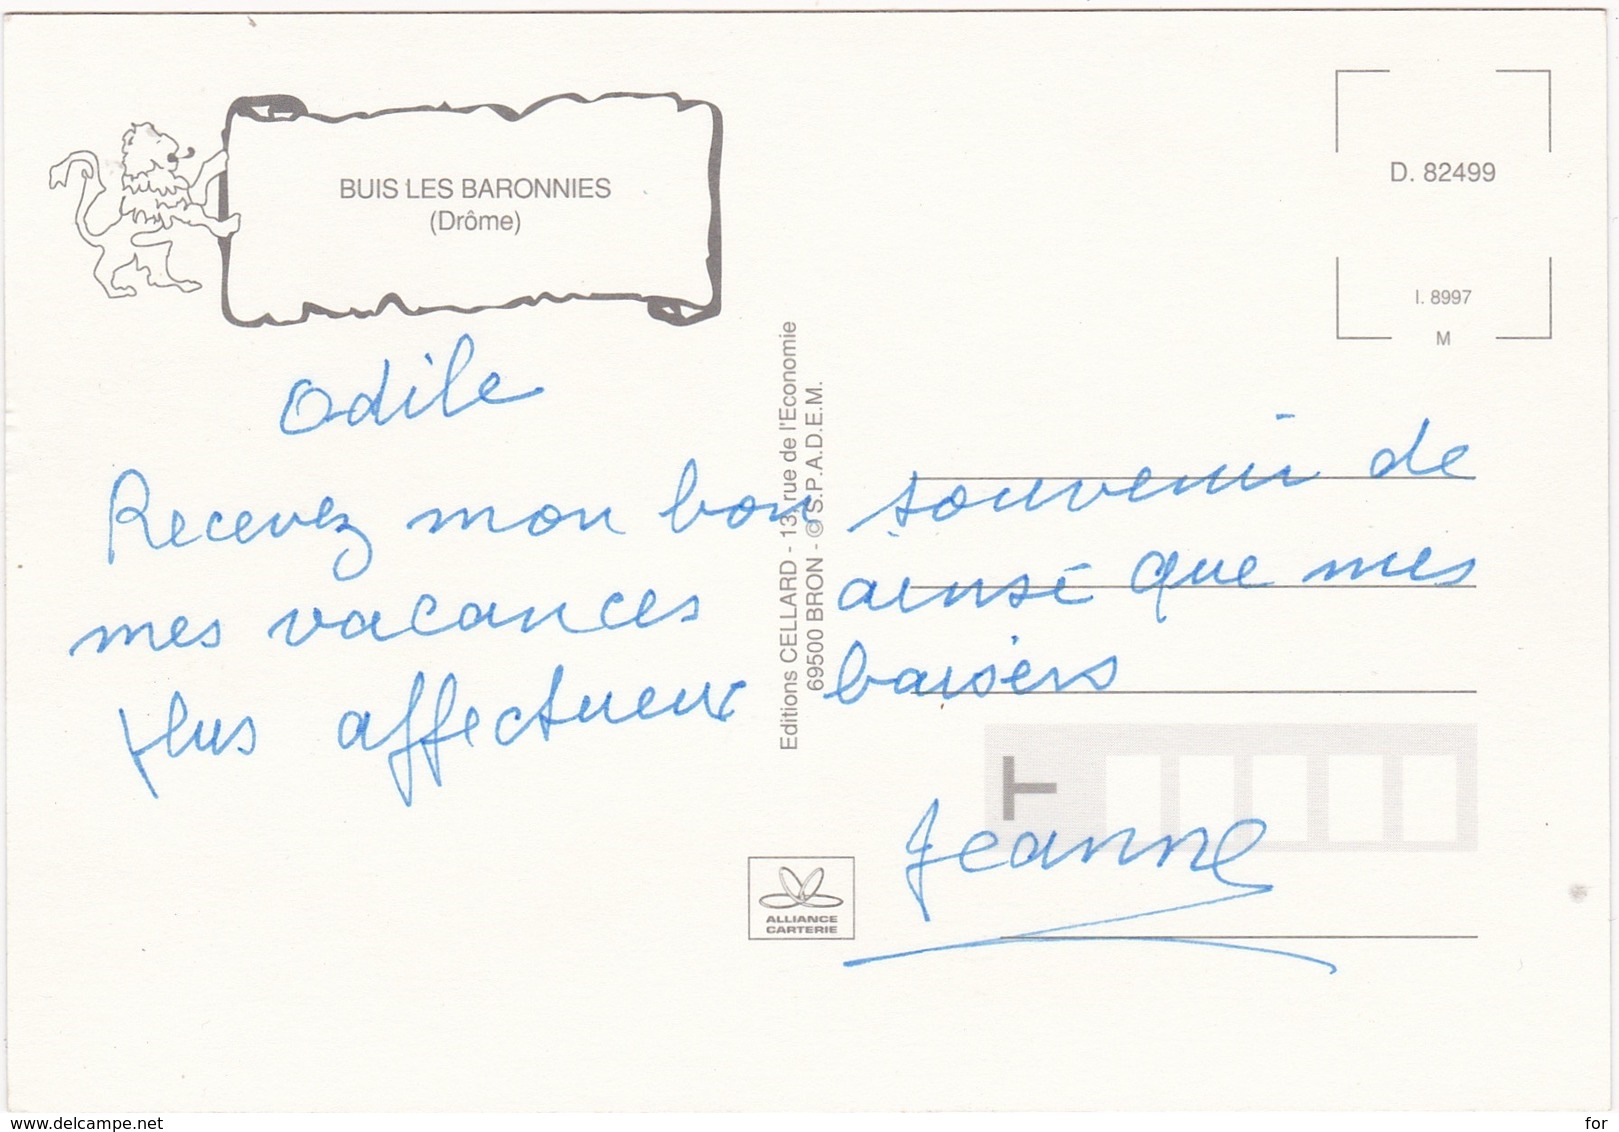 BUIS LES BARONNIES
(Drôme)
D. 82499
I. 8997
M
Odile
Recevez mon bon souvenir de
mes vacances ainsi que mes
plus affectueux baisers
Jeanne
Editions CELLARD - 13, rue de l'Economie
69500 BRON - © S.P.A.D.E.M.
T
ALLIANCE
CARTERIE
www.delcampe.net
for